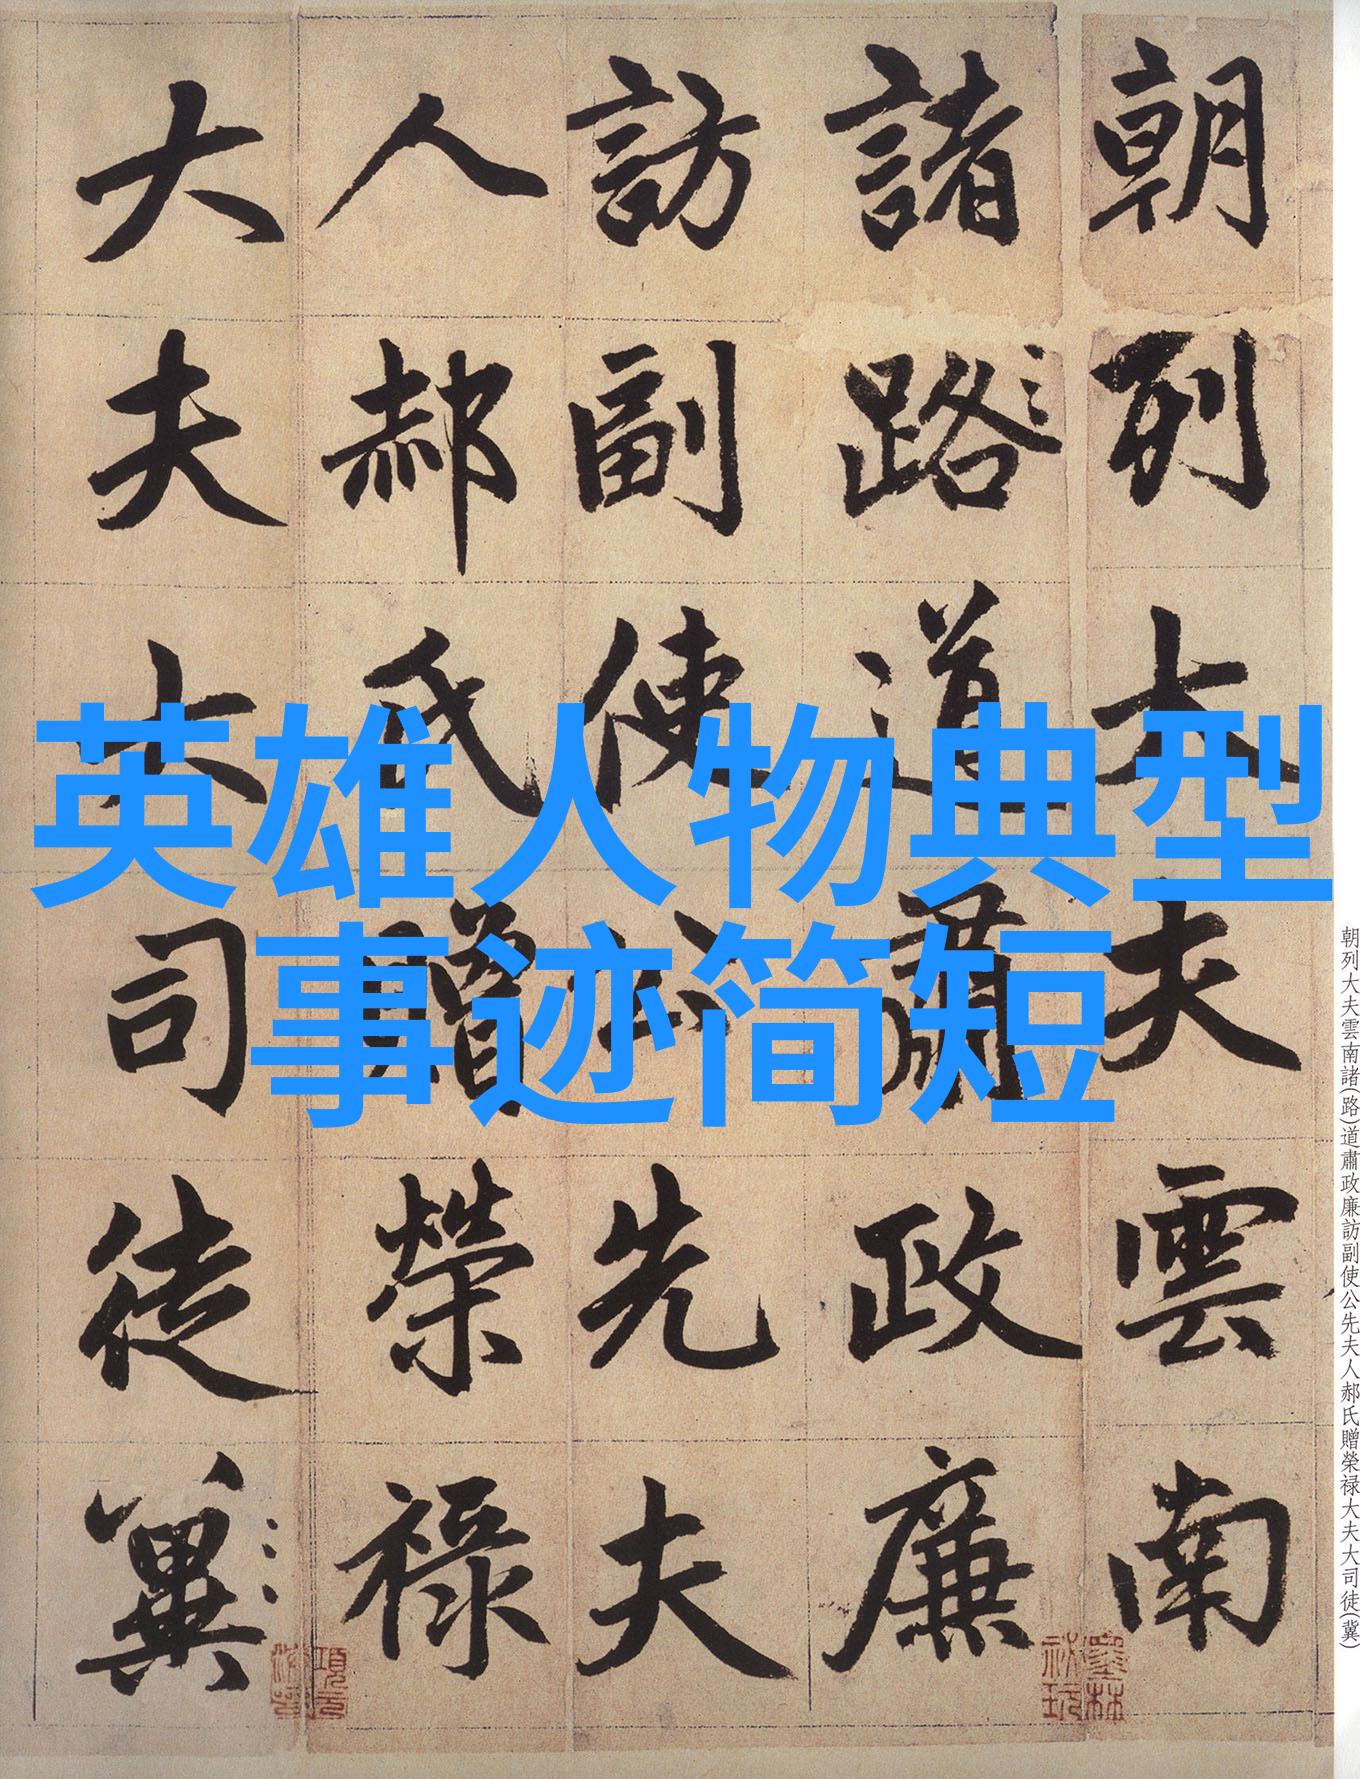 朝列大夫雲南
諸路道肅政廉
訪副使公先夫
人郝氏贈榮禄
大夫大司徒冀
英雄人物典型
事迹简短
朝列大夫雲南諸(路)道肅政廉訪副使公先夫人郝氏贈榮禄大夫大司徒(冀)
墨林祕玩
項元汴印